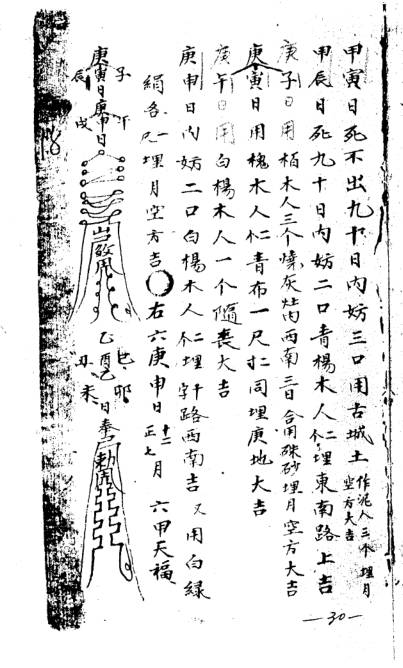 甲寅日死不出九十日内妨三口用古城土作泥人三个埋月空方大吉
甲辰日死九十日内妨二口青楊木人二个埋東南路上吉
庚子日用栢木人三个燒灰灶内西南三日合用硃砂埋月空方大吉
庚寅日用槐木人仁青布一尺仁同埋庚地大吉
庚午日用白楊木人一个隨喪大吉
庚申日内妨二口白楊木人二个埋十路西南吉又用白緑
絹各一尺埋月空方吉
右六庚申日十二正七月六甲天福
庚寅日庚申日
子午
辰戌
乙酉乙
巳卯
丑未
日奉
勅
—30—